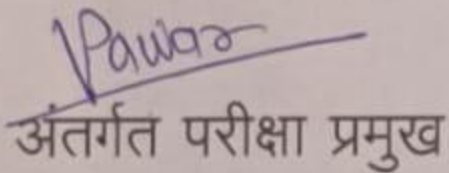 Pawar
अंतर्गत परीक्षा प्रमुख